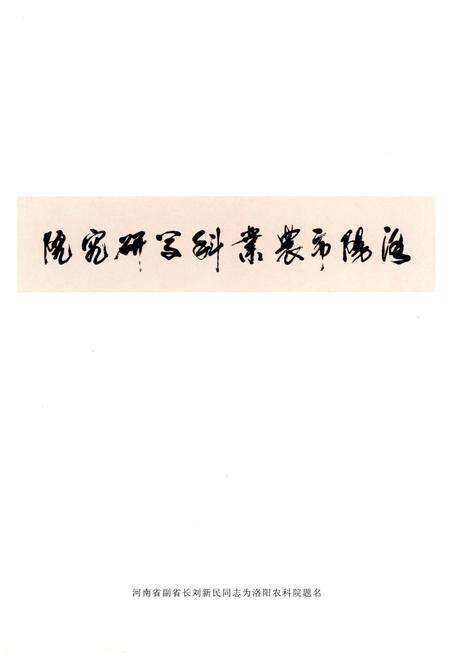 洛陽市農業科学研究院
河南省副省长刘新民同志为洛阳农科院题名